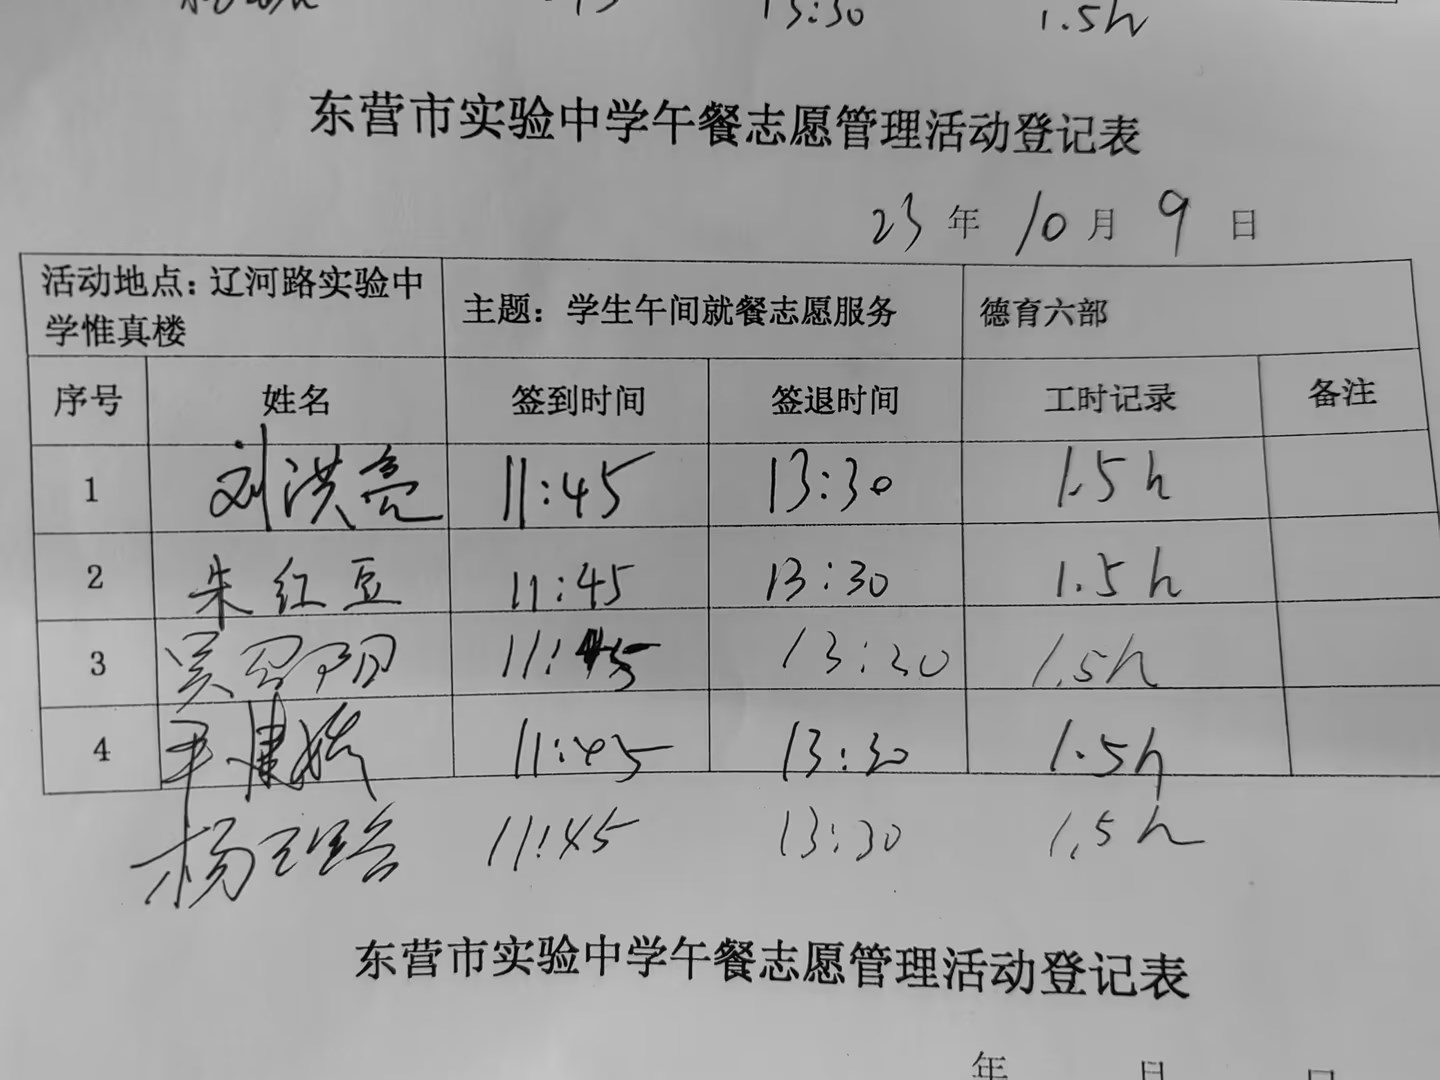 13:30 1.5h
东营市实验中学午餐志愿管理活动登记表
23年10月9日
活动地点：辽河路实验中学惟真楼 主题：学生午间就餐志愿服务 德育六部
序号 姓名 签到时间 签退时间 工时记录 备注
1 刘洪亮 11:45 13:30 1.5h
2 朱红豆 11:45 13:30 1.5h
3 吴 阳 11:45 13:30 1.5h
4 11:45 13:30 1.5h
杨 11:45 13:30 1.5h
东营市实验中学午餐志愿管理活动登记表
年 月 日